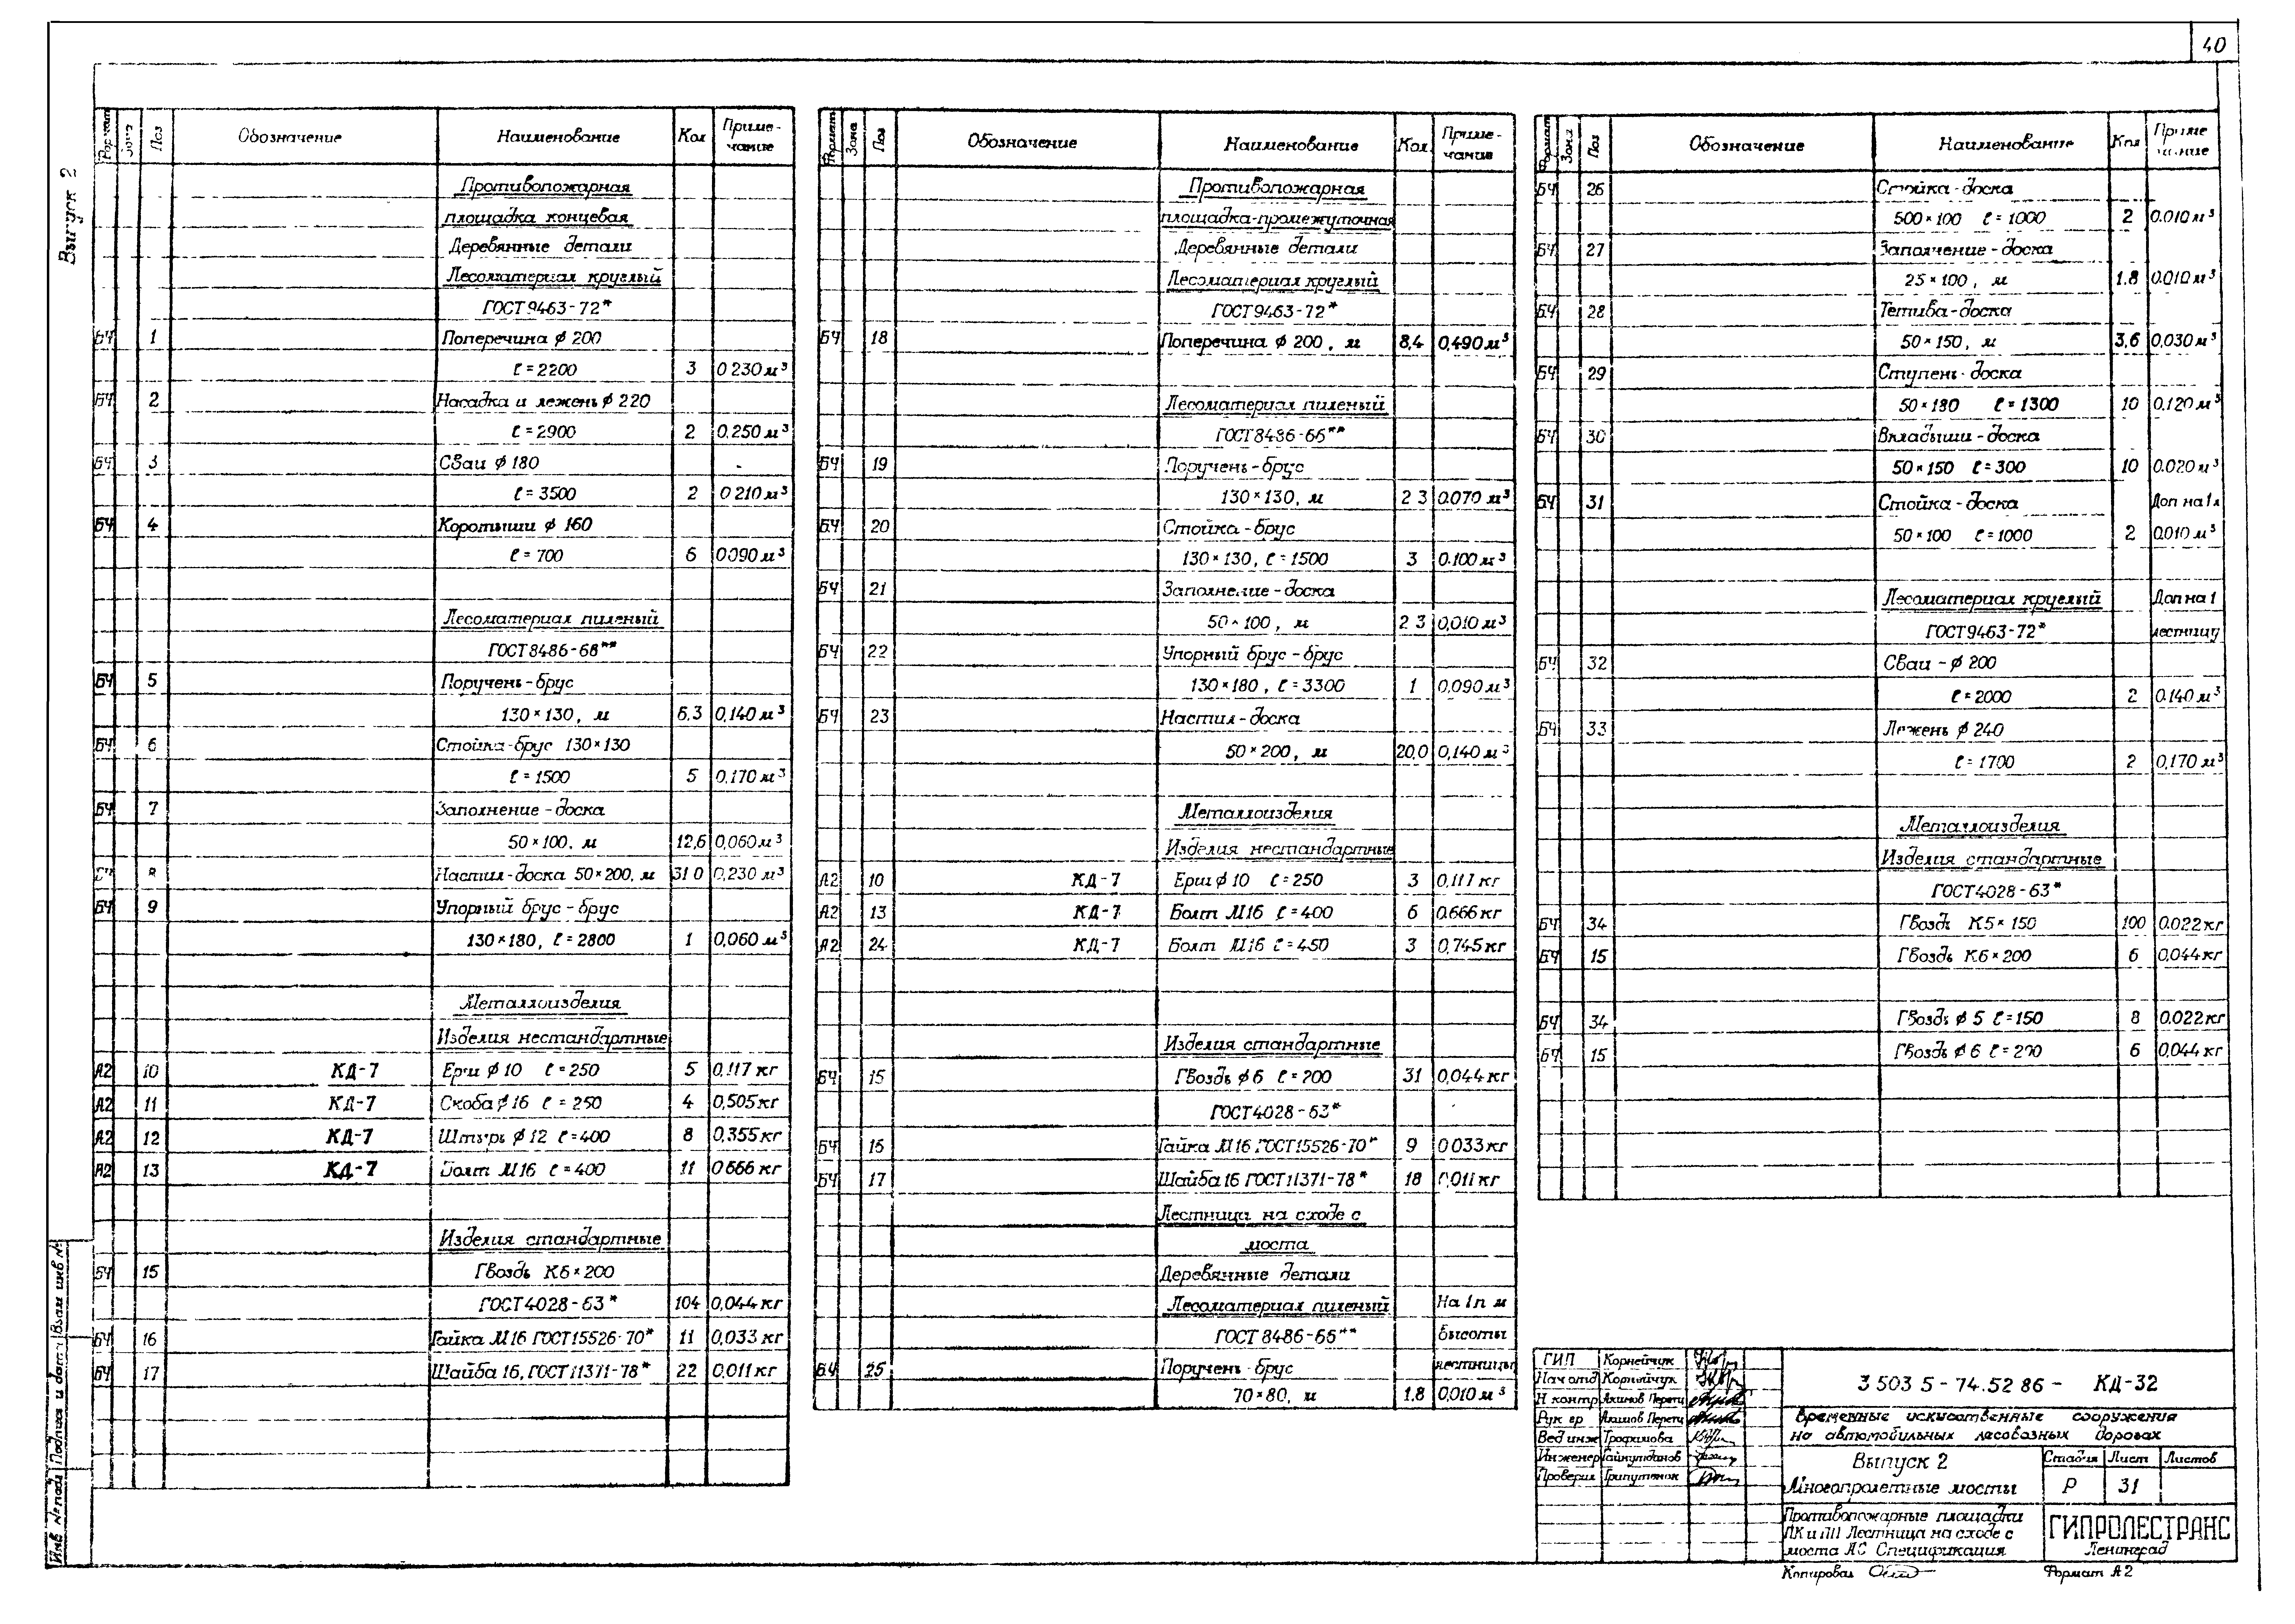 40
Выпуск 2
Формат Зона Поз Обозначение Наименование Кол Приме-чание
Противопожарная
площадка концевая
Деревянные детали
Лесоматериал круглый
ГОСТ 9463-72*
БЧ 1 Поперечина ϕ 200
ℓ = 2200 3 0230 м³
БЧ 2 Насадка и лежень ϕ 220
ℓ = 2900 2 0.250 м³
БЧ 3 Сваи ϕ 180
ℓ = 3500 2 0210 м³
БЧ 4 Коротыши ϕ 160
ℓ = 700 6 0.090 м³
Лесоматериал пиленый
ГОСТ 8486-66**
БЧ 5 Поручень-брус
130×130, м 6,3 0,140 м³
БЧ 6 Стойка-брус 130×130
ℓ = 1500 5 0,170 м³
БЧ 7 Заполнение-доска
50×100, м 12,6 0,060 м³
БЧ 8 Настил-доска 50×200, м 31 0 0,230 м³
БЧ 9 Упорный брус-брус
130×180, ℓ = 2800 1 0,060 м³
Металлоизделия
Изделия нестандартные
А2 10 КД-7 Ерш ϕ 10 ℓ = 250 5 0,117 кг
А2 11 КД-7 Скоба ϕ 16 ℓ = 250 4 0,505 кг
А2 12 КД-7 Штырь ϕ 12 ℓ = 400 8 0,355 кг
А2 13 КД-7 Болт М16 ℓ = 400 11 0666 кг
Изделия стандартные
БЧ 15 Гвоздь К6×200
ГОСТ 4028-63* 104 0,044 кг
БЧ 16 Гайка М16 ГОСТ 15526-70* 11 0,033 кг
БЧ 17 Шайба 16, ГОСТ 11371-78* 22 0,011 кг
Формат Зона Поз Обозначение Наименование Кол. Приме-чание
Противопожарная
площадка-промежуточная
Деревянные детали
Лесоматериал круглый
ГОСТ 9463-72*
БЧ 18 Поперечина ϕ 200, м 8,4 0,490 м³
Лесоматериал пиленый
ГОСТ 8486-66**
БЧ 19 Поручень-брус
130×130, м 2 3 0.070 м³
БЧ 20 Стойка-брус
130×130, ℓ = 1500 3 0.100 м³
БЧ 21 Заполнение-доска
50×100, м 2 3 0,010 м³
БЧ 22 Упорный брус-брус
130×180, ℓ = 3300 1 0,090 м³
БЧ 23 Настил-доска
50×200, м 20,0 0,140 м³
Металлоизделия
Изделия нестандартные
А2 10 КД-7 Ерш ϕ 10 ℓ = 250 3 0,117 кг
А2 13 КД-7 Болт М16 ℓ = 400 6 0.666 кг
А2 24 КД-7 Болт М16 ℓ = 450 3 0,745 кг
Изделия стандартные
БЧ 15 Гвоздь ϕ 6 ℓ = 200 31 0,044 кг
ГОСТ 4028-63*
БЧ 16 Гайка М16 ГОСТ 15526-70* 9 0033 кг
БЧ 17 Шайба 16 ГОСТ 11371-78* 18 0,011 кг
Лестница на сходе с
моста
Деревянные детали
Лесоматериал пиленый На 1 п м
ГОСТ 8486-66** высоты
БЧ 25 Поручень-брус лестницы
70×80, м 1.8 0,010 м³
Формат Зона Поз Обозначение Наименование Кол Приме чание
БЧ 26 Стойка-доска
500×100 ℓ = 1000 2 0.010 м³
БЧ 27 Заполнение-доска
25×100, м 1.8 0.010 м³
БЧ 28 Тетива-доска
50×150, м 3,6 0,030 м³
БЧ 29 Ступень-доска
50×180 ℓ = 1300 10 0,120 м³
БЧ 30 Вкладыши-доска
50×150 ℓ = 300 10 0.020 м³
БЧ 31 Стойка-доска Доп на 1 л
50×100 ℓ = 1000 2 0.010 м³
Лесоматериал круглый Доп на 1
ГОСТ 9463-72* лестницу
БЧ 32 Сваи-ϕ 200
ℓ = 2000 2 0.140 м³
БЧ 33 Лежень ϕ 240
ℓ = 1700 2 0,170 м³
Металлоизделия
Изделия стандартные
ГОСТ 4028-63*
БЧ 34 Гвоздь К5×150 100 0.022 кг
БЧ 15 Гвоздь К6×200 6 0,044 кг
БЧ 34 Гвоздь ϕ 5 ℓ = 150 8 0.022 кг
БЧ 15 Гвоздь ϕ 6 ℓ = 200 6 0,044 кг
Инв № подл Подпись и дата Взам инв №
ГИП Корнейчук
Нач отд Корнейчук
Н контр Акимов Перетц
Рук гр Акимов Перетц
Вед инж Трофимова
Инженер Гайнутданов
Проверил Трипутенок
3 503 5 - 74.52 86 - КД-32
Временные искусственные сооружения
на автомобильных лесовозных дорогах
Выпуск 2
Многопролетные мосты
Стадия Лист Листов
Р 31
Противопожарные площадки
ПК и ПП Лестница на сходе с
моста ЛС Спецификация
ГИПРОЛЕСТРАНС
Ленинград
Копировал
Формат А2